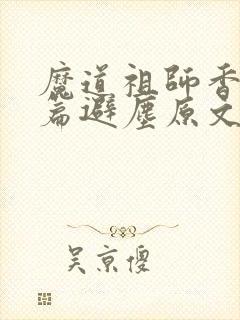 魔道祖師香
篇避塵原文
吴京傻